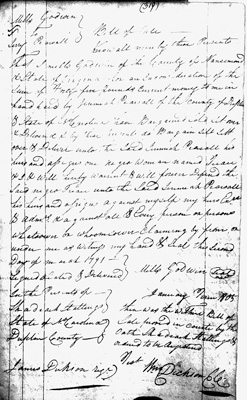 Mills Godwin
to
Bill of Sale
Know all men by these Presents
that I Mills Godwin of the County of Nansemond
& State of Virginia for an in Consideration of the
Sum of Pounds Current money to me in
hand paid by Jeremiah Pearsall of the County of Duplin
& State of No Carolina have Bargained Sold
& Delivered & by these presents do Bargain Sell Sett
over & Deliver unto the Said Jeremiah Pearsall his
heirs and assigns one negro Woman named
& I Will hereby warrant & Will forever Defend the
Said negro unto the Said Jeremiah Pearsall
his heirs and assigns against myself my heirs
& against all & Every person or persons
whatsoever or whomsoever Claiming by from or
under me as witness my hand & Seal this Second
Day of March 1791
Signed Sealed & Delivered Mills Godwin Seal
In the Presents of
Shadrach Stallings
State of No Carolina
Duplin County
January Term 1805
then was the within Bill of
Sale proved in county by the
oath Shadrach Stallings &
ordered to be Registered
James Dickson Regr
Test
Wm Dickson Clk